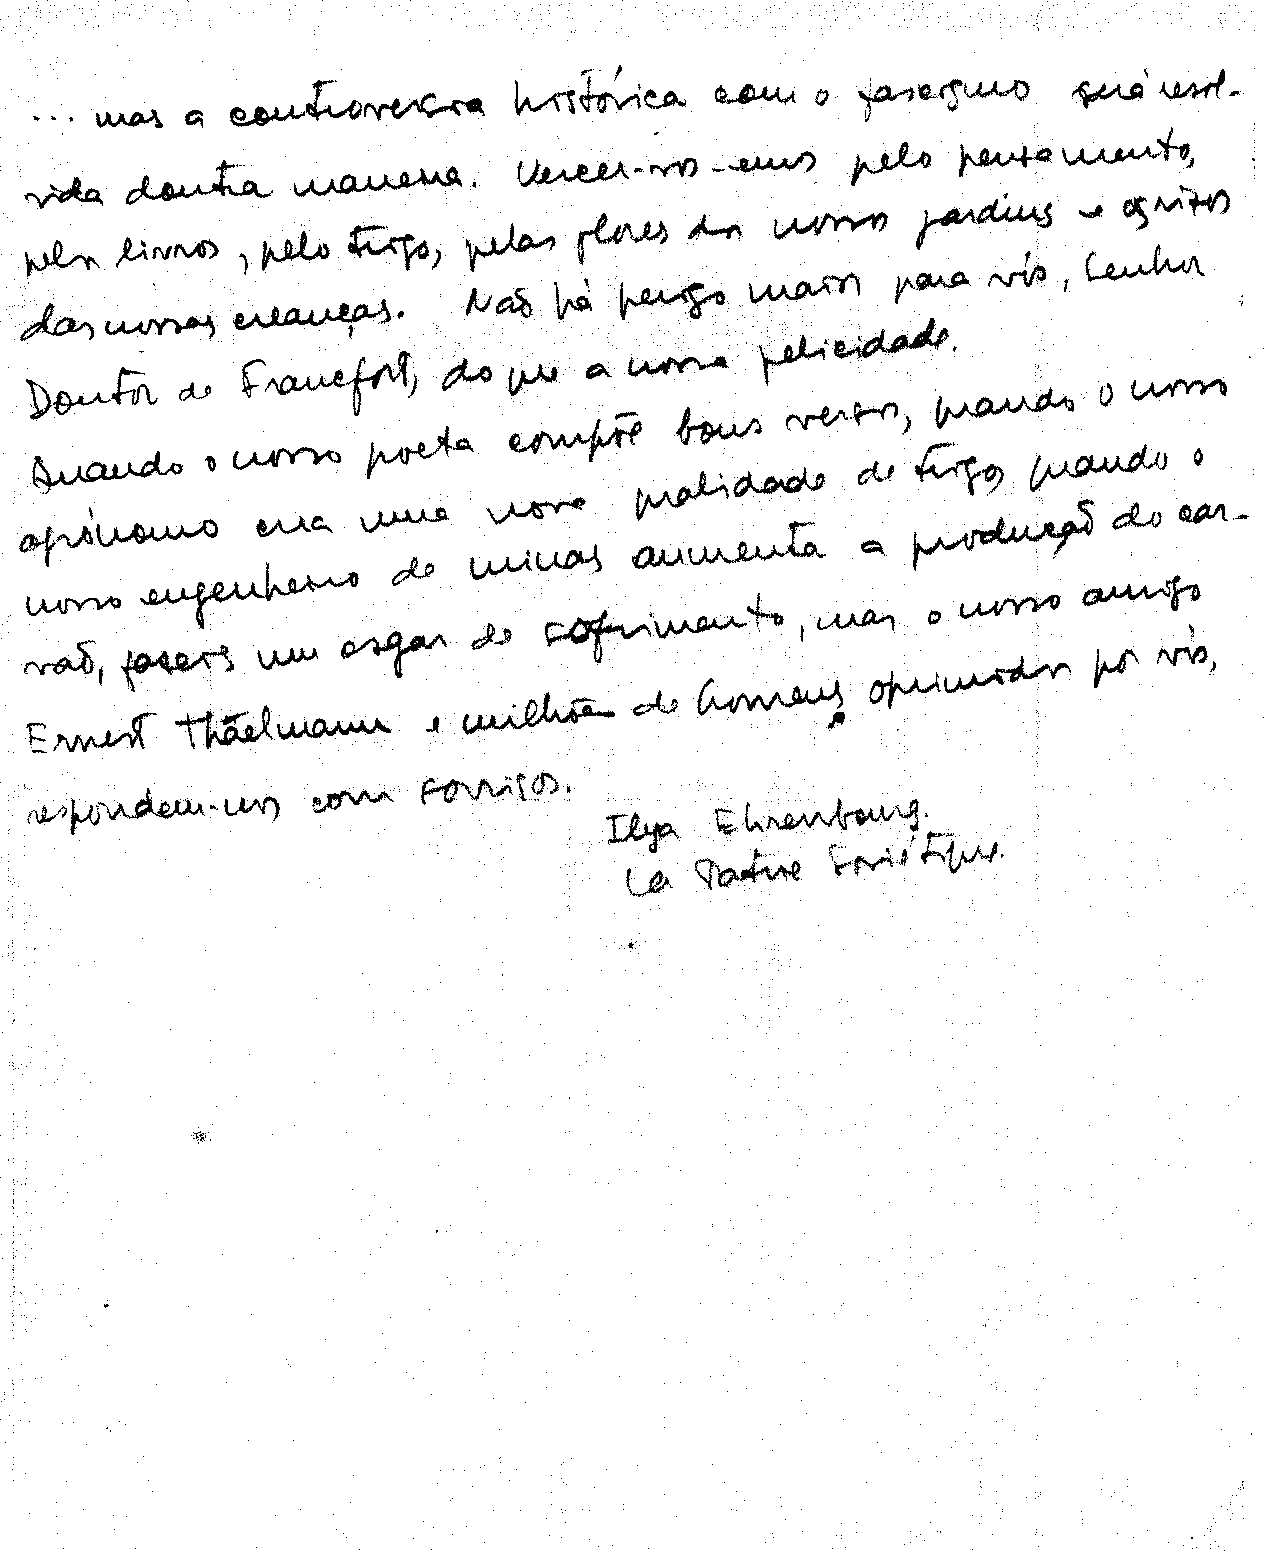 ... mas a controversia histórica com o fascismo será resol-
vida doutra maneira. Vencer-vos-emos pelo pensamento,
pelos livros, pelo trigo, pelas flores dos nossos jardins e os risos
das nossas creanças. Não há perigo maior para vós, Senhor
Doutor de Francfort, do que a nossa felicidade.
Quando o nosso poeta compõe bons versos, quando o nosso
agrónomo cria uma nova qualidade de trigo, quando o
nosso engenheiro de minas aumenta a produção do car-
vão, fazeis um esgar de sofrimento, mas o nosso amigo
Ernest Thäelmann e milhões de homens oprimidos por vós,
respondem-nos com sorrisos.
Ilya Ehrenbourg.
La Patrie Soviétique.